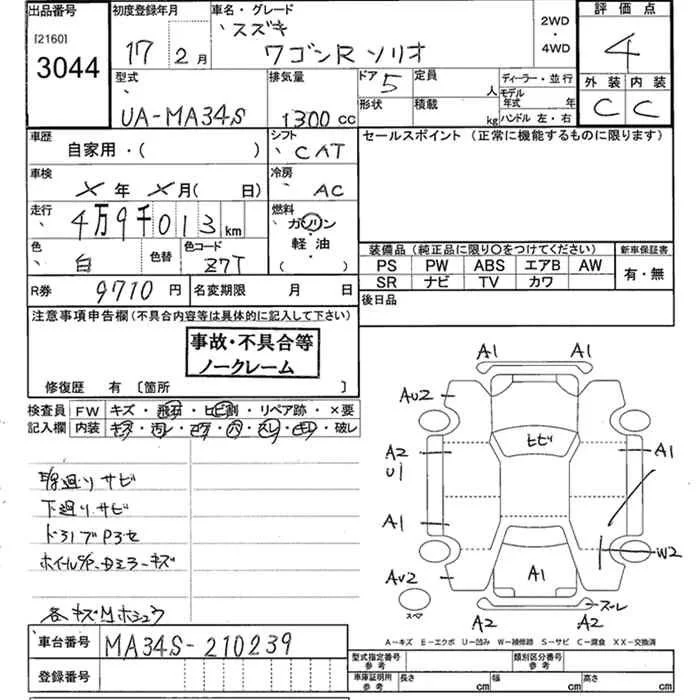 出品番号
[2160]
3044
初度登録年月
17年 2月
車名・グレード
スズキ
ワゴンR ソリオ
2WD
・
4WD
評価点
4
外装 内装
C C
型式
UA-MA34S
排気量
1300 cc
ドア 5
形状
定員 人
積載 kg
ディーラー・並行
モデル年式 年
ハンドル 左・右
車歴
自家用・( )
シフト
CAT
セールスポイント (正常に機能するものに限ります)
車検
X年 X月( 日)
冷房
AC
走行
4万9千013km
燃料
ガソリン
・
軽油
( )
色
白
色替
色コード
Z7T
装備品 (純正品に限り○をつけてください)
PS PW ABS エアB AW
SR ナビ TV カワ
新車保証書
有・無
R券 9710 円
名変期限 月 日
後日品
注意事項申告欄(不具合内容等は具体的に記入して下さい)
事故・不具合等
ノークレーム
修復歴 有 [箇所 ]
検査員
記入欄
FW キズ・飛石・ヒビ割・リペア跡・×要
内装 キズ・汚レ・コゲ・穴・スレ・キレ・破レ
下廻リサビ
ホイールC/P・Dミラーキズ
各キズMホシュウ
A1 A1
AU2
ヒビ
A2
U1
A1
A1
W2
AU2
A1
スペア
A2 A2
スレ
A-キズ E-エクボ U-凹み W-補修跡 S-サビ C-腐食 XX-交換済
車台番号 MA34S-210239
登録番号
型式指定番号
参考
類別区分番号
参考
車庫証明用
参考
長さ cm 幅 cm 高さ cm